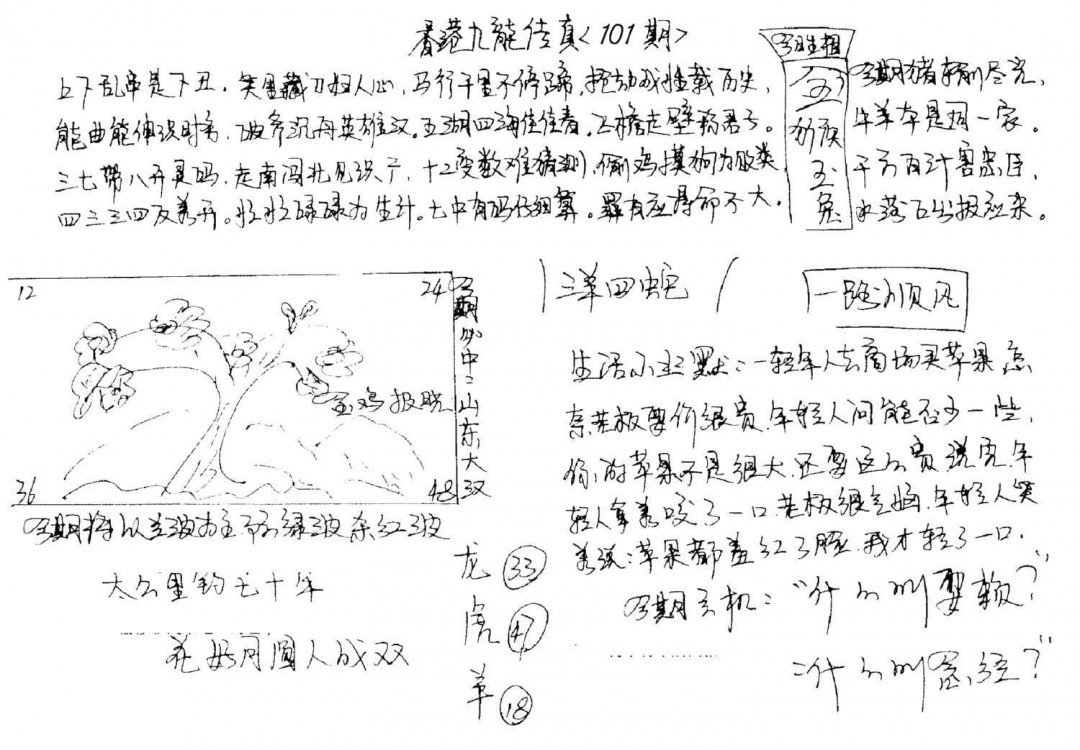 香港九龍传真<101期>
上下乱串是下丑，笑里藏刀妇人心，马行千里不停蹄，
能曲能伸识时务，破斧沉舟英雄汉。五湖四海佳佳春。飞檐走壁称君子。
三七带八开灵码，走南闯北见识广，十二变数难猜测，偷鸡摸狗为败类，
四三三四反着开。忙忙碌碌为生计。七中有码仔细算。罪有应得命不大。
今期猪羊前尽光，
牛羊本是同一家。
千方百计害忠臣，
水落石出报应来。
玉
兔
12
24
36
48
金鸡报晓
今期必中：山东大汉
三羊四蛇
一路顺风
生活小幽默：一轻年人去商场买苹果怎
奈老板要价很贵，年轻人问能否少一些，
你的苹果不是很大还要这么贵，说完年
轻人拿着咬了一口老板很气恼，年轻人笑
着说：苹果都羞红了脸，我才轻了一口.
今期玄机："什么叫耍赖？"
："什么叫念经？"
今期将以兰波为主，绿波，红波
太公里钓七十年
花好月圆人成双
龙 33
虎 47
羊 18